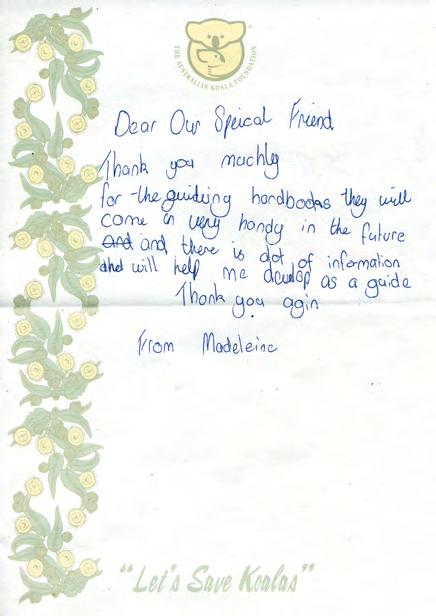 THE AUSTRALIAN KOALA FOUNDATION
Dear Our Speical Friend
Thank you muchly
for the guiding handbooks they will
come in very handy in the future
and and there is alot of infomation
and will help me devlop as a guide
Thank you agin
From Madeleine
"Let's Save Koalas"